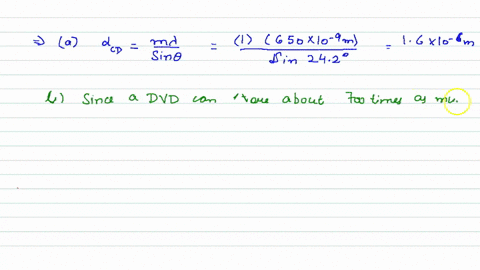 ⇒ (a) d_CD = mλ / Sinθ = (1) (650 × 10⁻⁹ m) / Sin 24.2° = 1.6 × 10⁻⁶ m
b) Since a DVD can about 700 times as mu